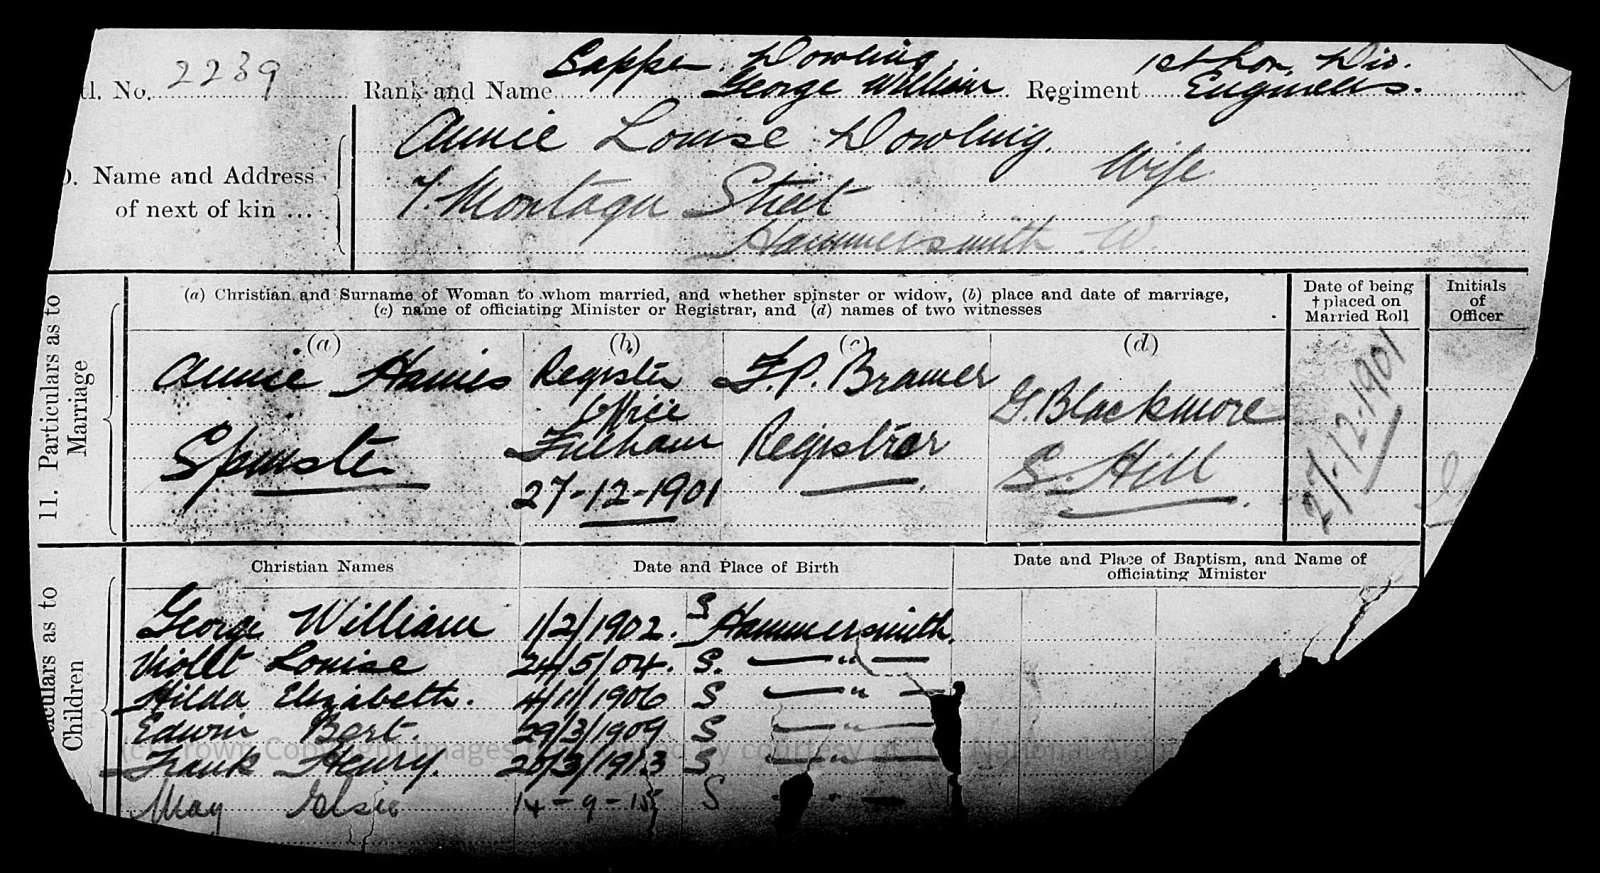 No. 2239 Rank and Name Sapper Dowling George William Regiment 1st Lon. Div. Engineers.
Name and Address of next of kin ...
Annie Louise Dowling. Wife
7. Montagu Street
Hammersmith W.
11. Particulars as to Marriage
(a) Christian and Surname of Woman to whom married, and whether spinster or widow, (b) place and date of marriage,
(c) name of officiating Minister or Registrar, and (d) names of two witnesses
Date of being † placed on Married Roll
Initials of Officer
(a) (b) (c) (d)
Annie Register F.P. Bramer G. Blackmore
Office
Spinster Fulham Registrar S. Hill
27-12-1901
27.12.1901
Children
Christian Names Date and Place of Birth Date and Place of Baptism, and Name of officiating Minister
George William 1/2/1902. S Hammersmith.
Violet Louise 24/5/04. S. — " —
Hilda Elizabeth. 4/11/1906 S — " —
Edwin Bert. 29/3/1909 S — " —
Frank Henry. 20/3/1913 S — " —
May Elsie 14-9-15 S
Crown Copyright Images courtesy of The National